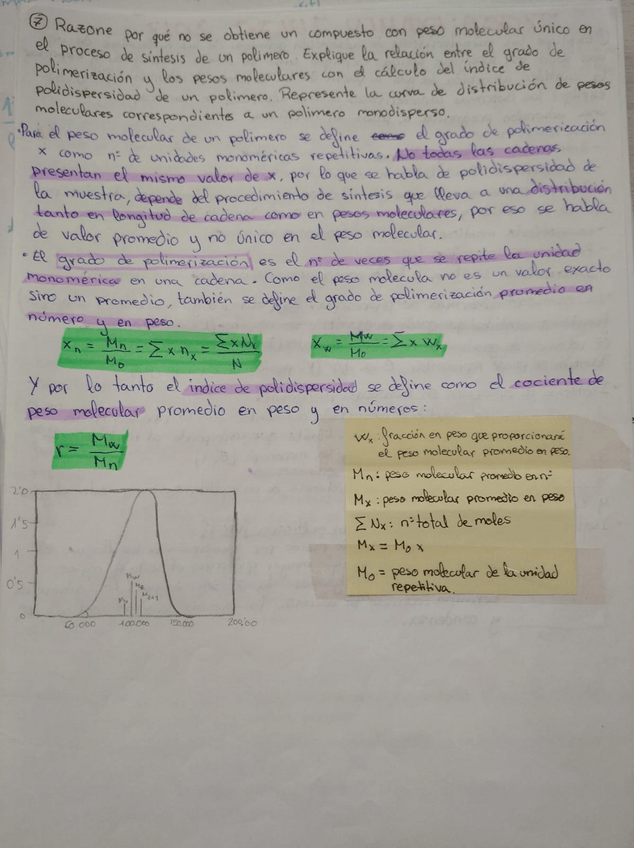 ⑦ Razone por qué no se obtiene un compuesto con peso molecular único en
el proceso de síntesis de un polimero. Explique la relación entre el grado de
polimerización y los pesos moleculares con el cálculo del índice de
polidispersidad de un polimero. Represente la curva de distribución de pesos
moleculares correspondientes a un polimero monodisperso.
• Para el peso molecular de un polimero se define el grado de polimerización
x como nº de unidades monoméricas repetitivas. No todas las cadenas
presentan el mismo valor de x, por lo que se habla de polidispersidad de
la muestra, depende del procedimiento de síntesis que lleva a una distribución
tanto en longitud de cadena como en pesos moleculares, por eso se habla
de valor promedio y no único en el peso molecular.
• El grado de polimerización es el nº de veces que se repite la unidad
monomérica en una cadena. Como el peso molecula no es un valor exacto
sino un promedio, también se define el grado de polimerización promedio en
número y en peso.
Xn = Mn/M0 = ∑ x nx = ∑xNx/N
Xw = Mw/M0 = ∑ x wx
Y por lo tanto el índice de polidispersidad se define como el cociente de
peso molecular promedio en peso y en números:
r = Mw/Mn
Wx: fracción en peso que proporcionará
el peso molecular promedio en peso.
Mn: peso molecular promedio en nº
Mx: peso molecular promedio en peso
∑ Nx: nº total de moles
Mx = M0 x
M0 = peso molecular de la unidad
repetitiva.
2'0
1'5
1
0'5
0
60.000 100.000 150.000 200'00